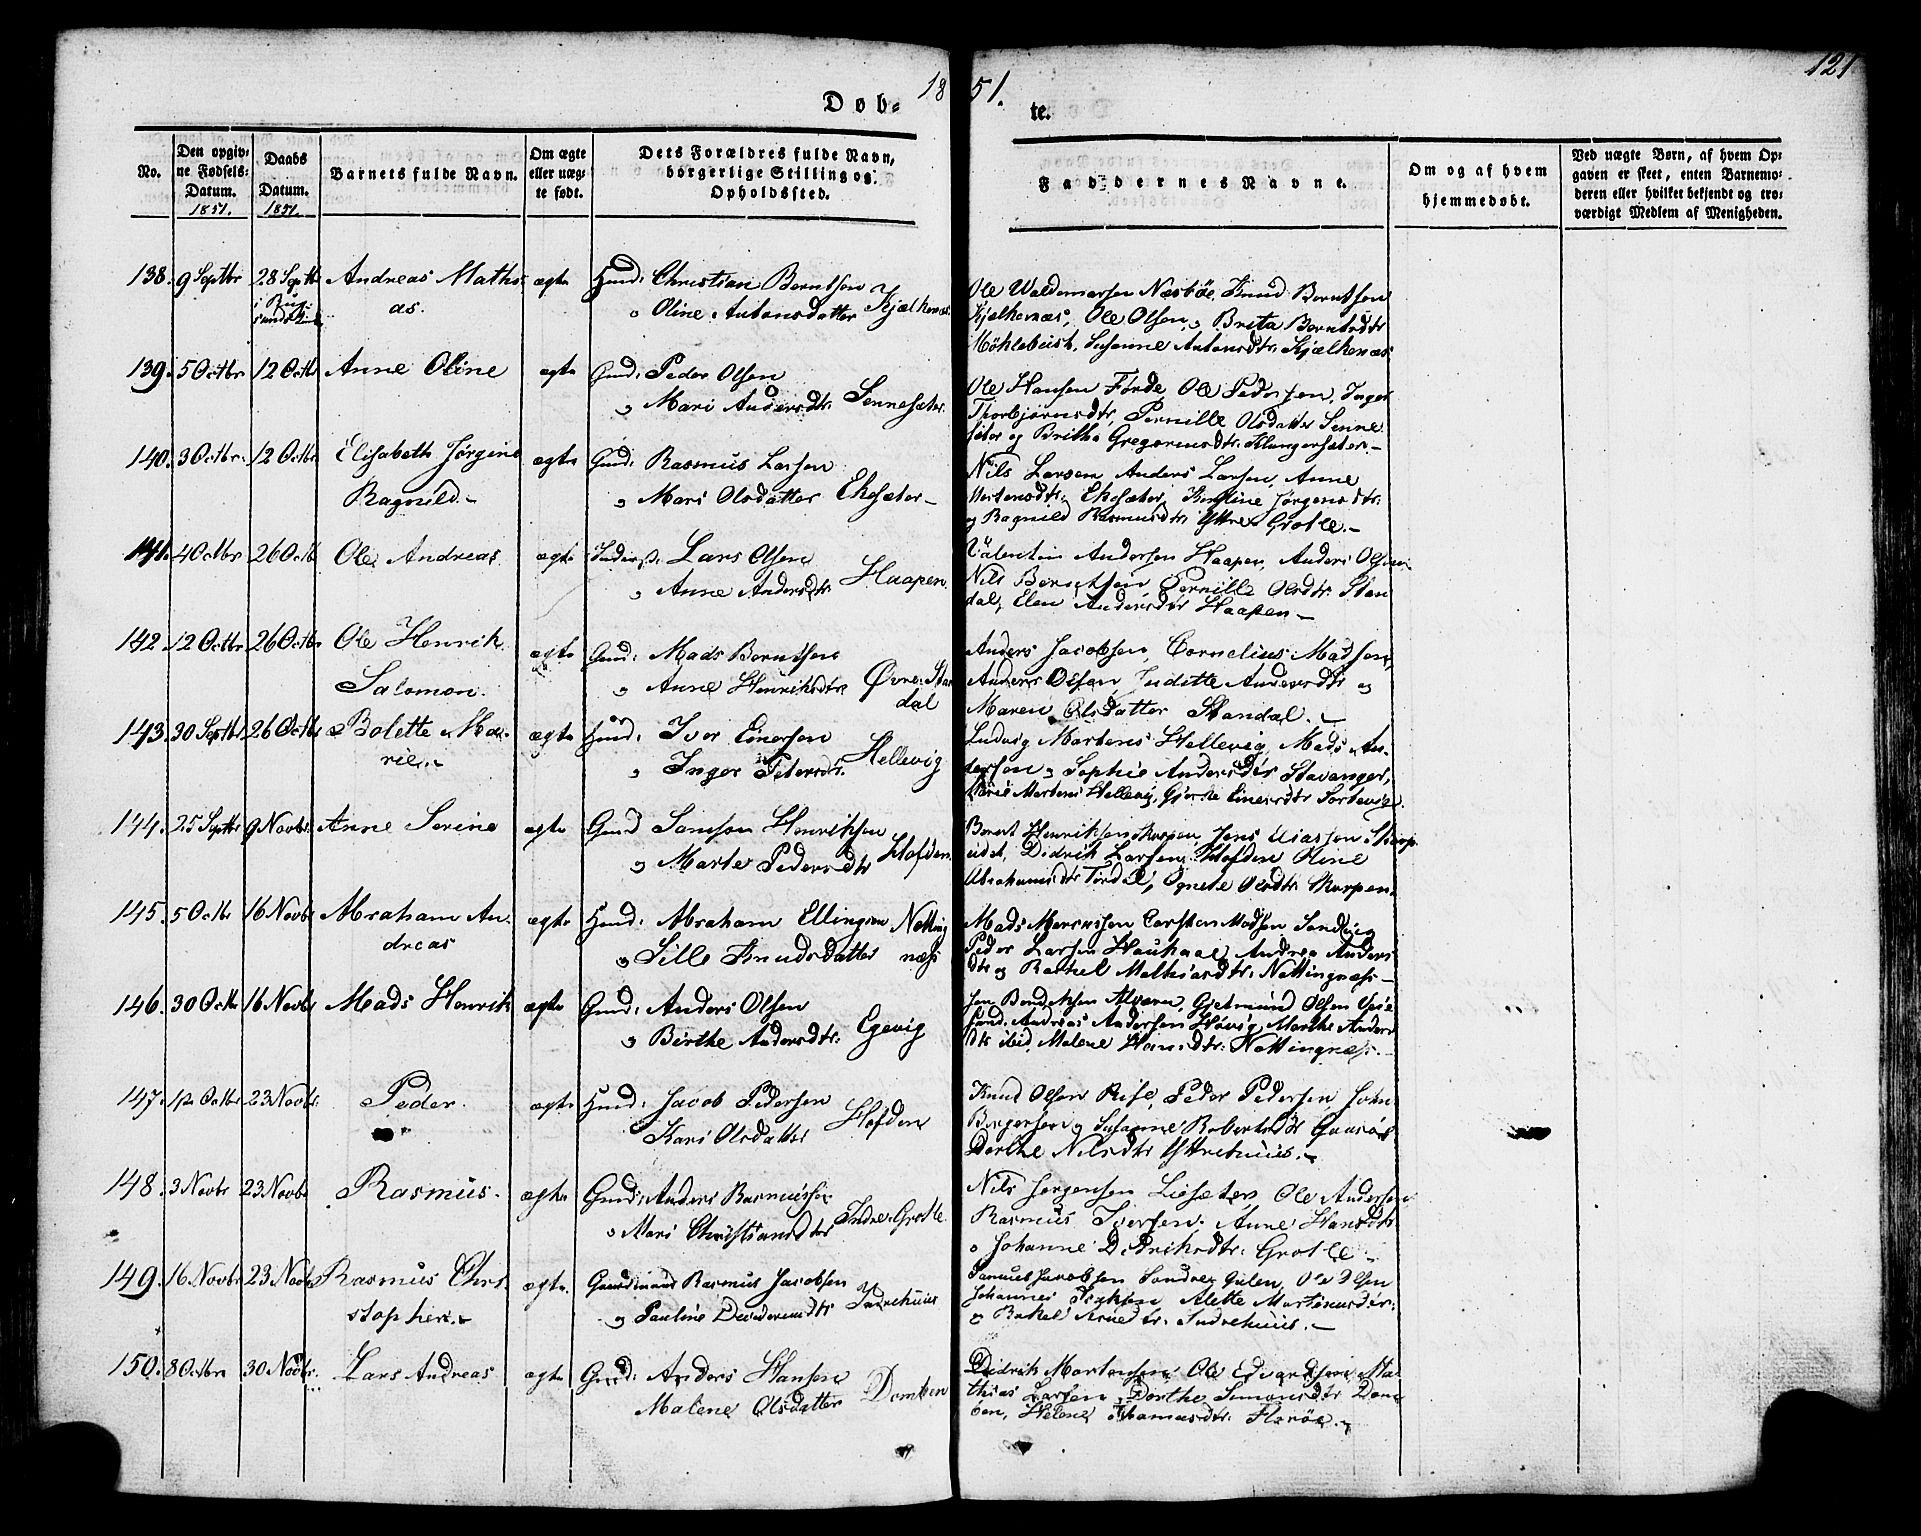 1851.
121
Døbte.
No.
Den opgivne Fødsels-Datum. 1851.
Daabs Datum. 1851.
Barnets fulde Navn.
Om ægte eller uægte født.
Dets Forældres fulde Navn, borgerlige Stilling og Opholdssted.
Faddernes Navne.
Om og af hvem hjemmedøbt.
Ved uægte Børn, af hvem Opgaven er skeet, enten Barnemoderen eller hvilket bekjendt og troværdigt Medlem af Menigheden.
138. 9 Septbr 28 Septb Andreas Mathi- ægte Huud: Christian Berntsen
as. " Oline Antonsdatter Kjælkenæs
Ole Waldemarsen Næsbøe, Knud Berntsen
Kjælkenæs, Ole Olsen, " Brita Berntsdtr
Susanne Antonsdtr Kjælkenæs
139. 5 Octbr 12 Octb Anne Oline ægte Gmd: Peder Olsen
" Mari Andersdtr. Sennesæter.
Ole Hansen Førde, Ole Pedersen, Inger
Thorbjørnsdtr, Pernille Olsdatter Senne
sæter og Britha Gregoriusdtr. Klungersæter.-
140. 3 Octbr. 12 Octbr Elisabeth Jørgine ægte Gmd: Rasmus Larsen
Ragnild.- " Mari Olsdatter Ekesæter-
Nils Larsen, Anders Larsen, Anne
Mortensdtr. Ekesæter, Jørgensdtr.
og Ragnild Rasmusdtr Yttre Grotle.-
141. 4 Octbr 26 Octb Ole Andreas ægte Lars Olsen
" Anne Andersdtr Haapen.
Valentin Andersen Haapen, Anders Olsen
Nils Pernille Olsdtr Stan
dal, Elen Andersdtr Haapen-
142. 12 Octbr 26 Octbr Ole Henrik ægte Gmd: Mads Berntsen
Salomon. " Anne Henriksdtr Øvre Stan
dal
Anders Jacobsen, Cornelius Madsen,
Anders Olsen, Juditte Andersdtr og
Maren Olsdatter Standal.-
143. 30 Septbr 26 Octbr Bolette Ma- ægte Huud: Iver Einersen
rie.- " Inger Petersdtr. Hellevig
Ludvig Martens Hellevig, Mads An-
dersen " Sophie Andersdtr Stavanger,
Marie Martens Hellevig, Einersdtr
144. 25 Septbr 9 Novbr. Anne Serine ægte Gmd Samson Henriksen
" Marte Pedersdtr Hofden
Berent Henriksen Skorpen, Jens Eliassen
Didrik Larsen Hofden Oline
Abrahamsdtr Tördal, Agnete Olsdtr Skorpen.
145. 5 Octbr 16 Novbr Abraham An- ægte Huud: Abraham Ellingsen Notting
dreas " Sille Knudsdatter næss
Mads Carsten Madsen Sandvig
Peder Larsen Andrea Anders
dtr og Rachel Mathiasdtr. Nottingnæss-
146. 30 Octbr 16 Novbr Mads Henrik ægte Gmd: Anders Olsen
" Birthe Andersdtr: Egevig
Gjetmund Olsen
Andreas Andersen Marthe Anders
dtr ibid, Malene Hansdtr. Nottingnæss.-
147. 12 Octbr 23 Novbr. Peder. ægte Huud: Jacob Pedersen
Kari Olsdatter Hofden
Knud Olsen Rise, Peder Pedersen, John
Susanne Robertsdtr
Dorthe Nilsdtr Yttrehuus.-
148. 3 Novbr 23 Novbr Rasmus. ægte Gmd: Anders Rasmussen
" Mari Christiansdtr Indre Grotle
Nils Jørgensen Liesæter, Ole Andersen
Rasmus Iversen. Anne Hansdtr
" Johanne Didriksdtr. Grotle-
149. 16 Novbr 23 Novbr Rasmus Chri- ægte. Gaardmand Rasmus Jacobsen
stopher.- " Pauline Indrehuus
Samuel Jacobsen Søndre Gulen, Ole Olsen
Johannes Alette Martinusdtr:
" Rakel Indrehuus.-
150. 8 Octbr 30 Novbr: Lars Andreas ægte Gmd: Anders Hansen
Malene Olsdatter Domben
Didrik Mortensen Ole Edvardsen Ma-
thias Larsen, Dorthe Simonsdtr Dom
ben, Helene Thomasdtr. Florøe.-